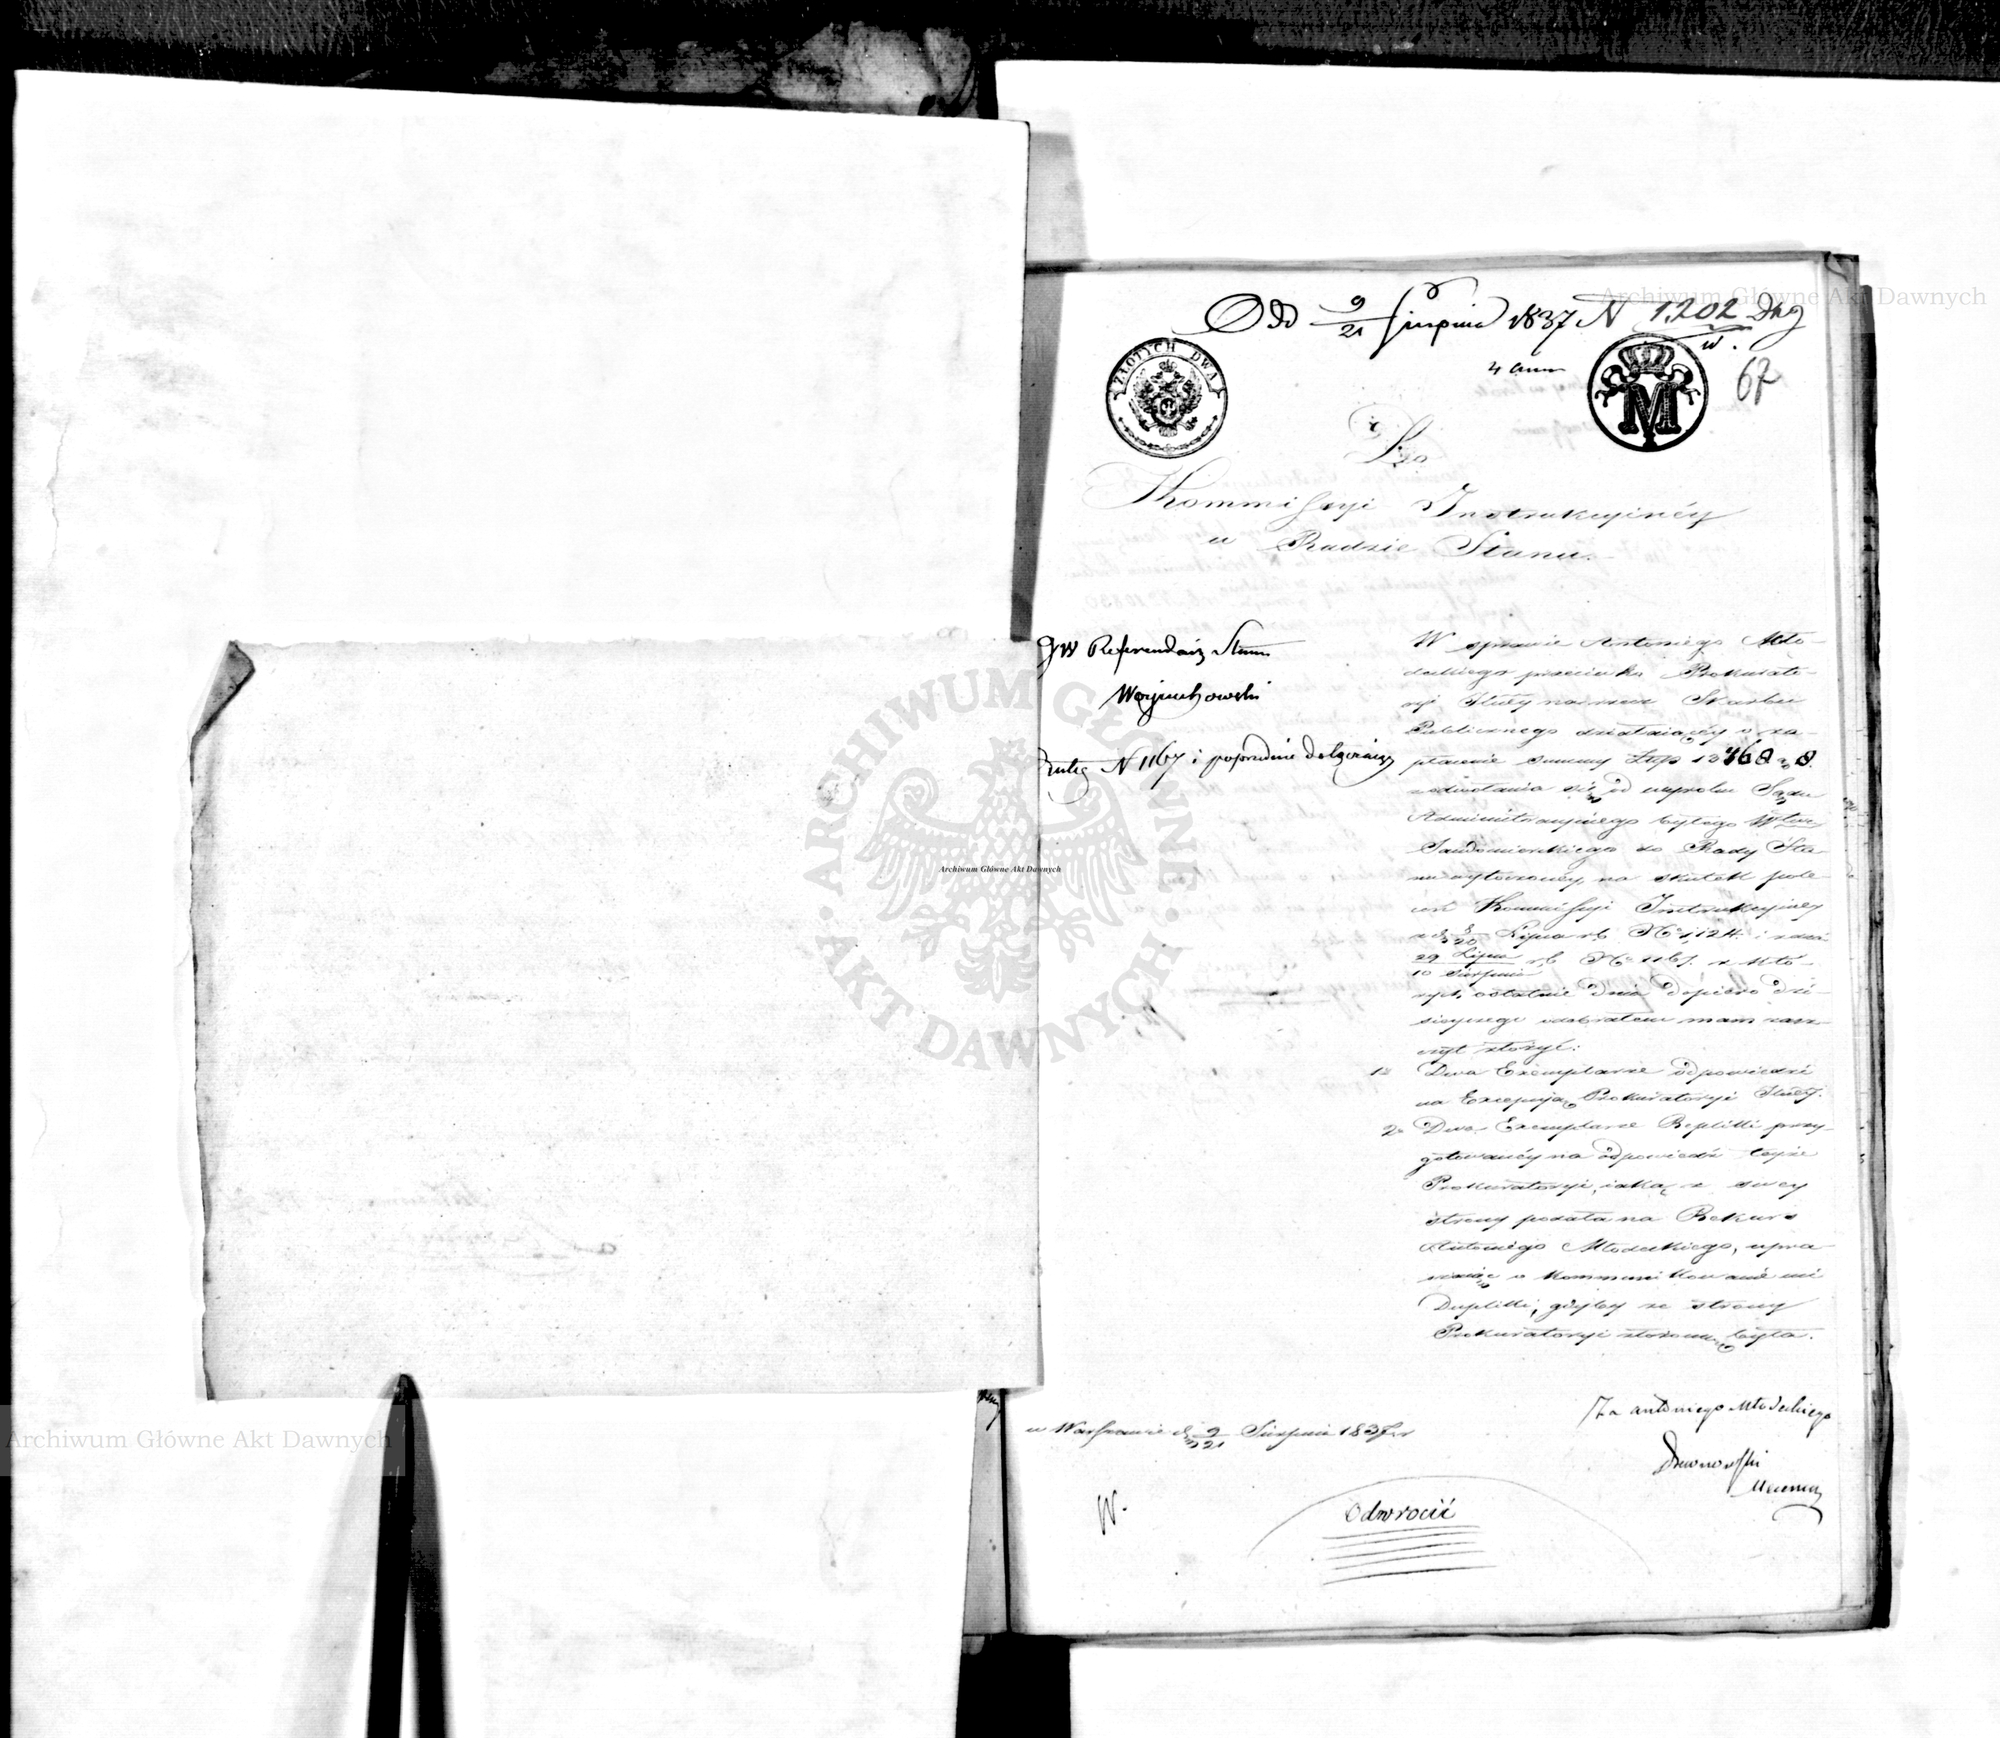 Odd 9/21 Sierpnia 1837 N 1,202 Dkg
w.
4 ann
67
ZŁOTYCH DWA
M
Do
Kommissyi Instrukcyinéy
w Radzie Stanu.
JW Referendarz Stanu
Woyciechowski
N 1167 i poprzednie dołączając
W sprawie Antoniego Mło-
deckiego przeciwko Prokurato-
ryi
Skarbu
Publicznego działaiącéy o za-
płacenie summy Złtp 13468 g 8.
z odwołania się od wyroku Sądu
Administracyinego byłego Wtwa
Sandomierskiego do Rady Sta-
nu wytoczonéy, na skutek pole-
ceń Kommissyi Instrukcyiney
z d. 8/20 Lipca r.b. No 1,124. i z dnia
29 Lipca/10 Sierpnia r.b. No 1167. z któ-
rych ostatnie dnia dopiero dzi-
sieyszego odebrałem mam zasz-
czyt złożyć:
1o Dwa Exemplarze odpowiedzi
na Excepcyją Prokuratoryi
2o Dwa Exemplarze Repliki przy-
gotowanéy na odpowiedź téyże
Prokuratoryi, iaką z swey
strony podała na Rekurs
Antoniego Młodeckiego, upra-
szaiąc o kommunikowanie mi
Dupliki, gdyby ze strony
Prokuratoryi złożoną była.
Za Antoniego Młodeckiego
w Warszawie d. 9/21 Sierpnia 1837 r
Mecenas
W.
Odwrócić
ARCHIWUM GŁÓWNE AKT DAWNYCH
Archiwum Główne Akt Dawnych
Archiwum Główne Akt Dawnych
Archiwum Główne Akt Dawnych